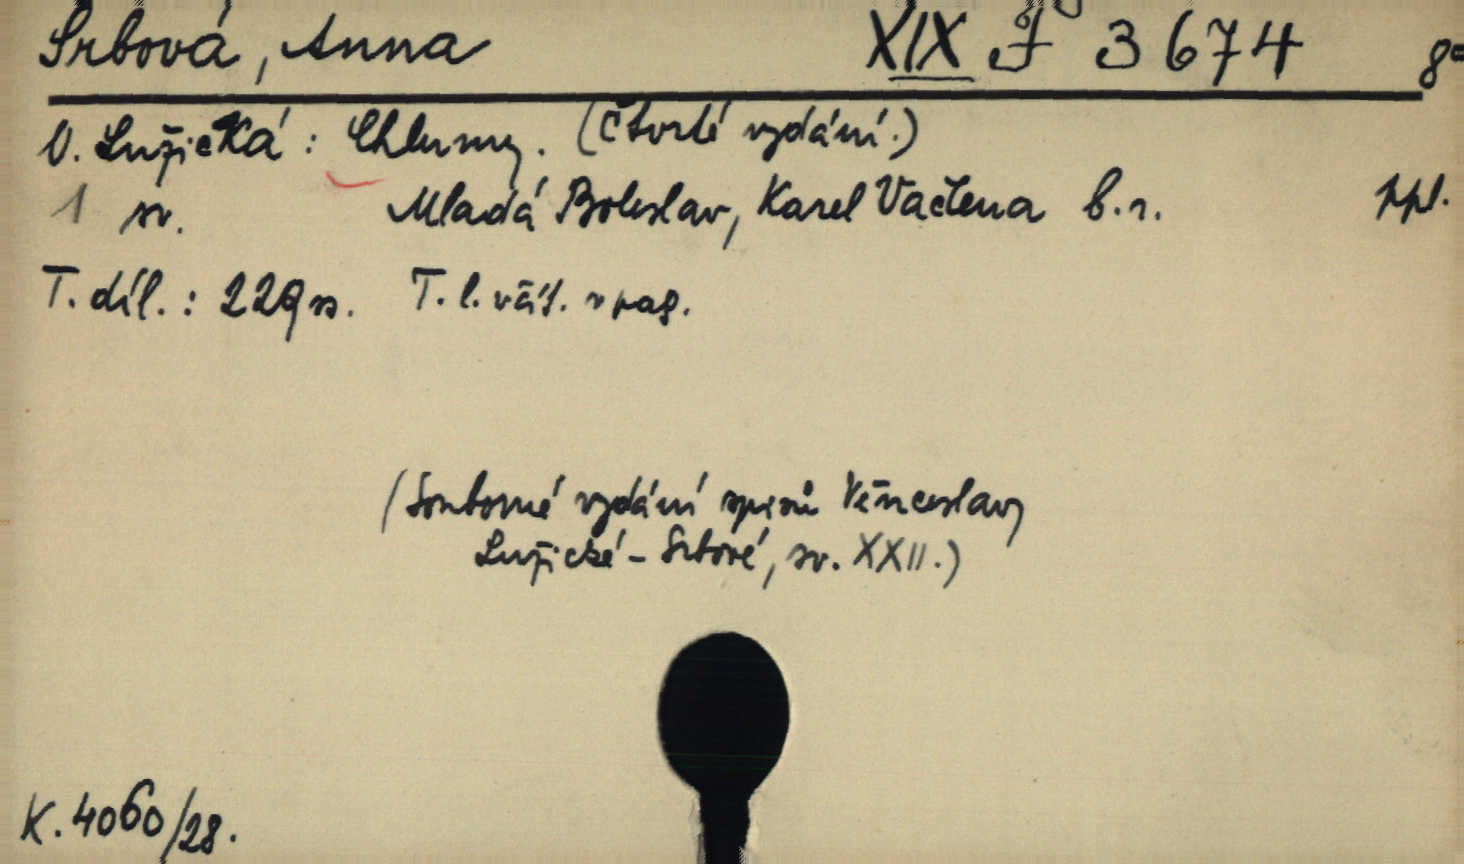 Srbová, Anna XIX J 3674 8°
V. Lužická: Chlumy. (Čtvrté vydání.)
1 sv. Mladá Boleslav, Karel Vačlena b.r. ppl.
T. díl.: 229 s. T. l. váš. v pag.
(Souborné vydání spisů Věnceslavy
Lužické-Srbové, sv. XXII.)
K. 4060/28.